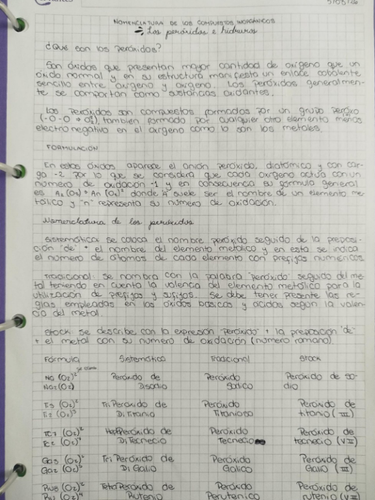 NOMENCLATURA DE LOS COMPUESTOS INORGÁNICOS
→ Los peróxidos e hidruros
¿QUE son los Peróxidos?
Son óxidos que presentan mayor cantidad de oxígeno que un
óxido normal y en su estructura manifiesta un enlace covalente
sencillo entre oxígeno y oxígeno. Los Peróxidos generalmen-
te se comportan como sustancias oxidantes.
Los Peróxidos son compuestos formados por un grupo peróxo
también formada por cualquier otro elemento menos
electronegativo en el oxígeno como lo son los metales.
FORMULACIÓN
En estos óxidos, aparece el anión peróxido, diatómico y con car-
ga -2 por lo que se considera que cada oxígeno actúa con un
número de oxidación -1 y en consecuencia su fórmula general
es donde "A" suele ser el nombre de un elemento me-
tálico y "n" representa su número de oxidación.
Nomenclatura de los peróxidos
Sistemática: Se coloca el nombre peróxido seguido de la preposi-
ción "de" y el nombre del elemento metálico y en esta se indica
el número de átomos de cada elemento con prefijos numéricos
Tradicional: se nombra con la palabra "peróxido" seguido del me-
tal teniendo en cuenta la valencia del elemento metálico para la
utilización de prefijos y sufijos. Se debe tener presente las re-
glas empleadas en los óxidos básicos y ácidos según la valen-
cia del metal.
Stock: se describe con la expresión "peróxido" + la preposición "de"
+ el metal con su número de oxidación (número romano).
Fórmula Sistemática Tradicional Stock
Peróxido de Peróxido Peróxido de so-
Disodio Sódico dio
Peróxido de Peróxido Peróxido de
Di titanio Titanioso titanio (III)
Peróxido de Peróxido Peróxido de
Di Tecnecio Tecnecio tecnecio (VII)
Tri Peróxido de Peróxido Peróxido de
Di Galio Galico Galio (III)
Peróxido de Peróxido Peróxido de
Rutenio Perutenico rutenio